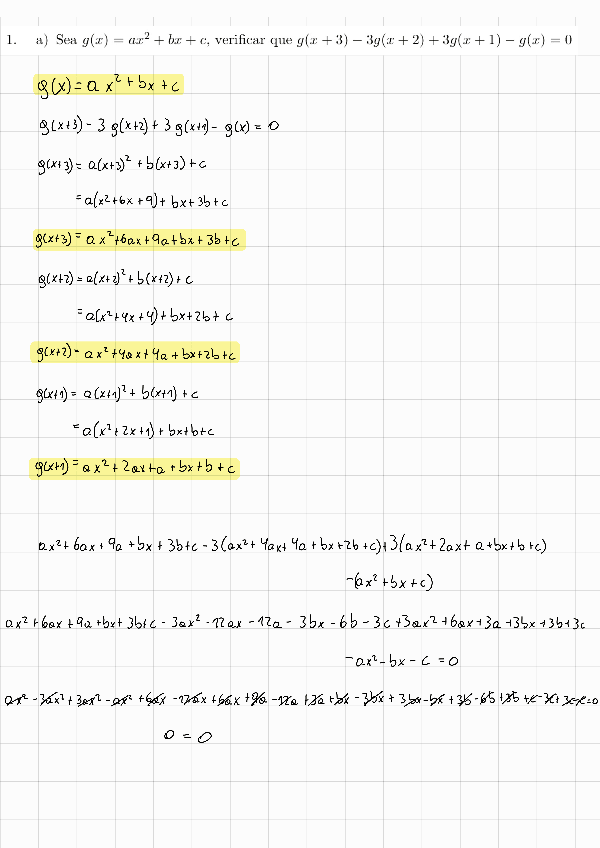 1. a) Sea g(x) = ax² + bx + c, verificar que g(x + 3) − 3g(x + 2) + 3g(x + 1) − g(x) = 0
g(x) = ax² + bx + c
g(x+3) - 3 g(x+2) + 3 g(x+1) - g(x) = 0
g(x+3) = a(x+3)² + b(x+3) + c
= a(x²+6x+9) + bx + 3b + c
g(x+3) = ax²+6ax+9a+bx+3b+c
g(x+2) = a(x+2)² + b(x+2) + c
= a(x²+4x+4) + bx+2b+c
g(x+2) = ax²+4ax+4a+bx+2b+c
g(x+1) = a(x+1)² + b(x+1) + c
= a(x²+2x+1) + bx+b+c
g(x+1) = ax²+2ax+a+bx+b+c
ax²+6ax+9a+bx+3b+c-3(ax²+4ax+4a+bx+2b+c)+3(ax²+2ax+a+bx+b+c)
-(ax²+bx+c)
ax²+6ax+9a+bx+3b+c-3ax²-12ax-12a-3bx-6b-3c+3ax²+6ax+3a+3bx+3b+3c
-ax²-bx-c=0
ax²-3ax²+3ax²-ax²+6ax-12ax+6ax+9a-12a+3a+bx-3bx+3bx-bx+3b-6b+3b+c-3c+3c-c=0
0 = 0